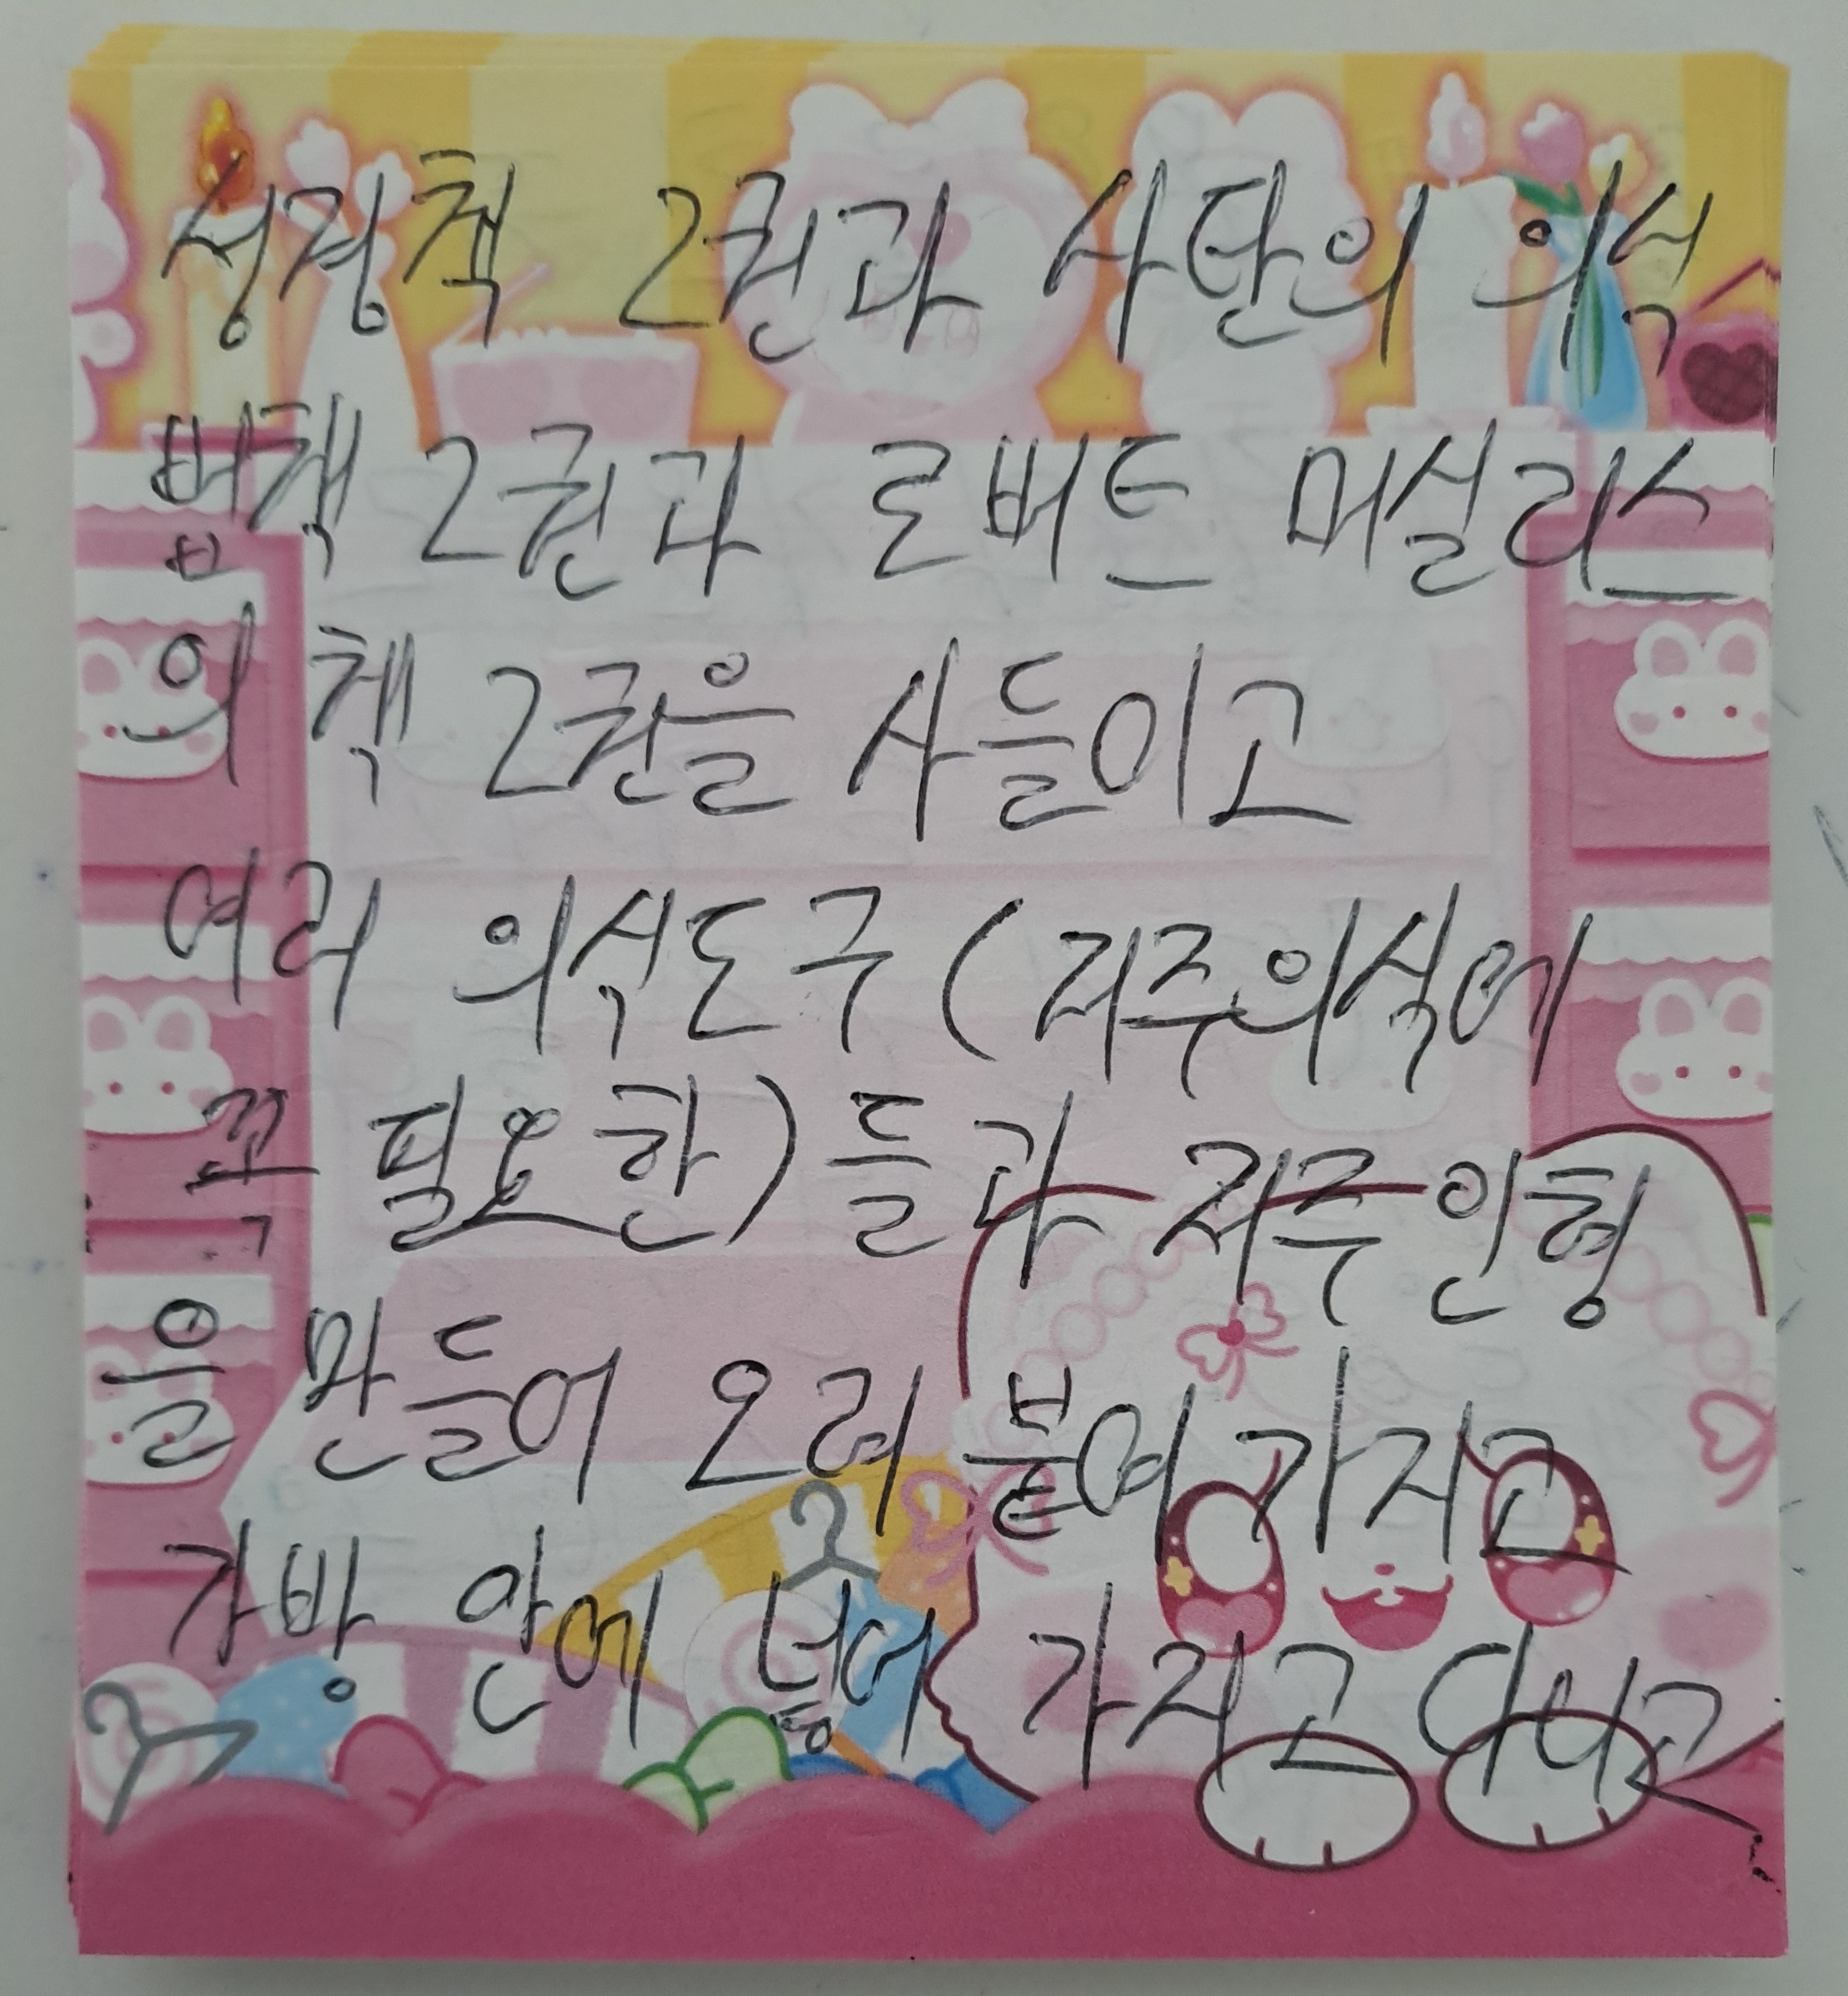 성경책 2권과 사단의 의식
법책 2권과 로버트 머실리스
의 책 2권을 사들이고
여러 의식도구 (저주의식에
꼭 필요한) 들과 저주 인형
을 만들어 오려 붙여 가지고
가방 안에 넣어 가지고 다니고